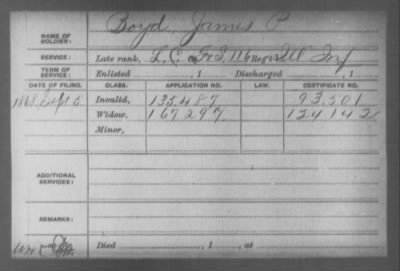 NAME OF SOLDIER: Boyd James P.
SERVICE: Late rank, L.C. F & S, 116 Reg't Ill Inf
TERM OF SERVICE: Enlisted , 1 Discharged , 1
DATE OF FILING. CLASS. APPLICATION NO. LAW. CERTIFICATE NO.
1868 Sept 5 Invalid, 135.487 93.501
Widow, 167297 124142
Minor,
ADDITIONAL SERVICES:
REMARKS:
Died , 1 , at